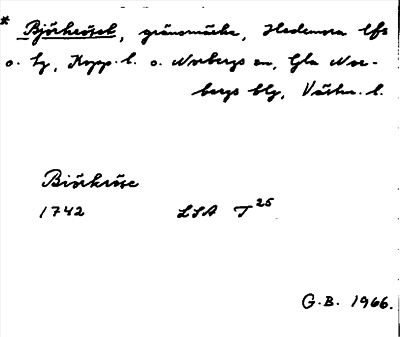 * Björkröset, gränsmärke, Hedemora lfs
o. hg, Kopp. l. o. Norbergs sn, Gla Nor-
bergs blg, Västm. l.
Biörkröse
1742 LSA T 25
G.B. 1966.